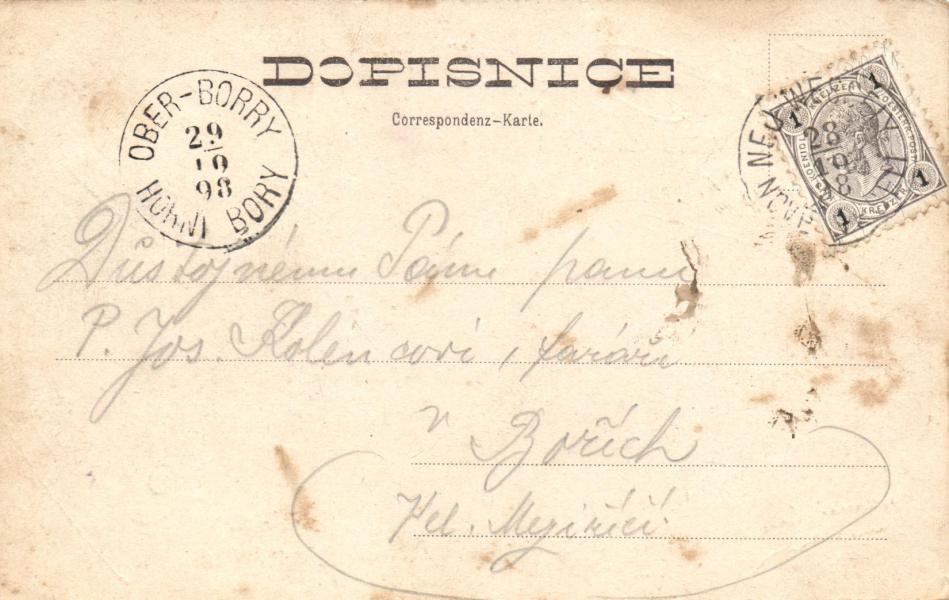 DOPISNICE
Correspondenz-Karte.
OBER-BORRY
29
10
98
HORNI BORY
28
Důstojnému Pánu panu
P. Jos. Kolencovi, faráři
v Bořích
Vel. Meziříčí
1
1
1
1
KREUZER